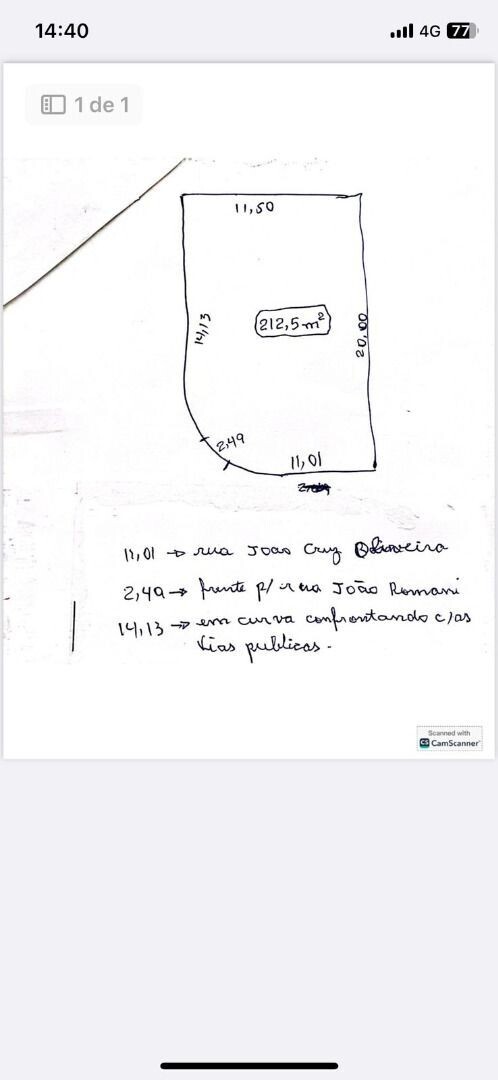 14:40
4G 77
1 de 1
11,50
14,13
212,5m²
20,00
2,49
11,01
11,01 → rua Joao Cruz
2,49 → frente p/ rua João Romani
14,13 → em curva confrontando c/as
vias publicas.
Scanned with
CS CamScanner